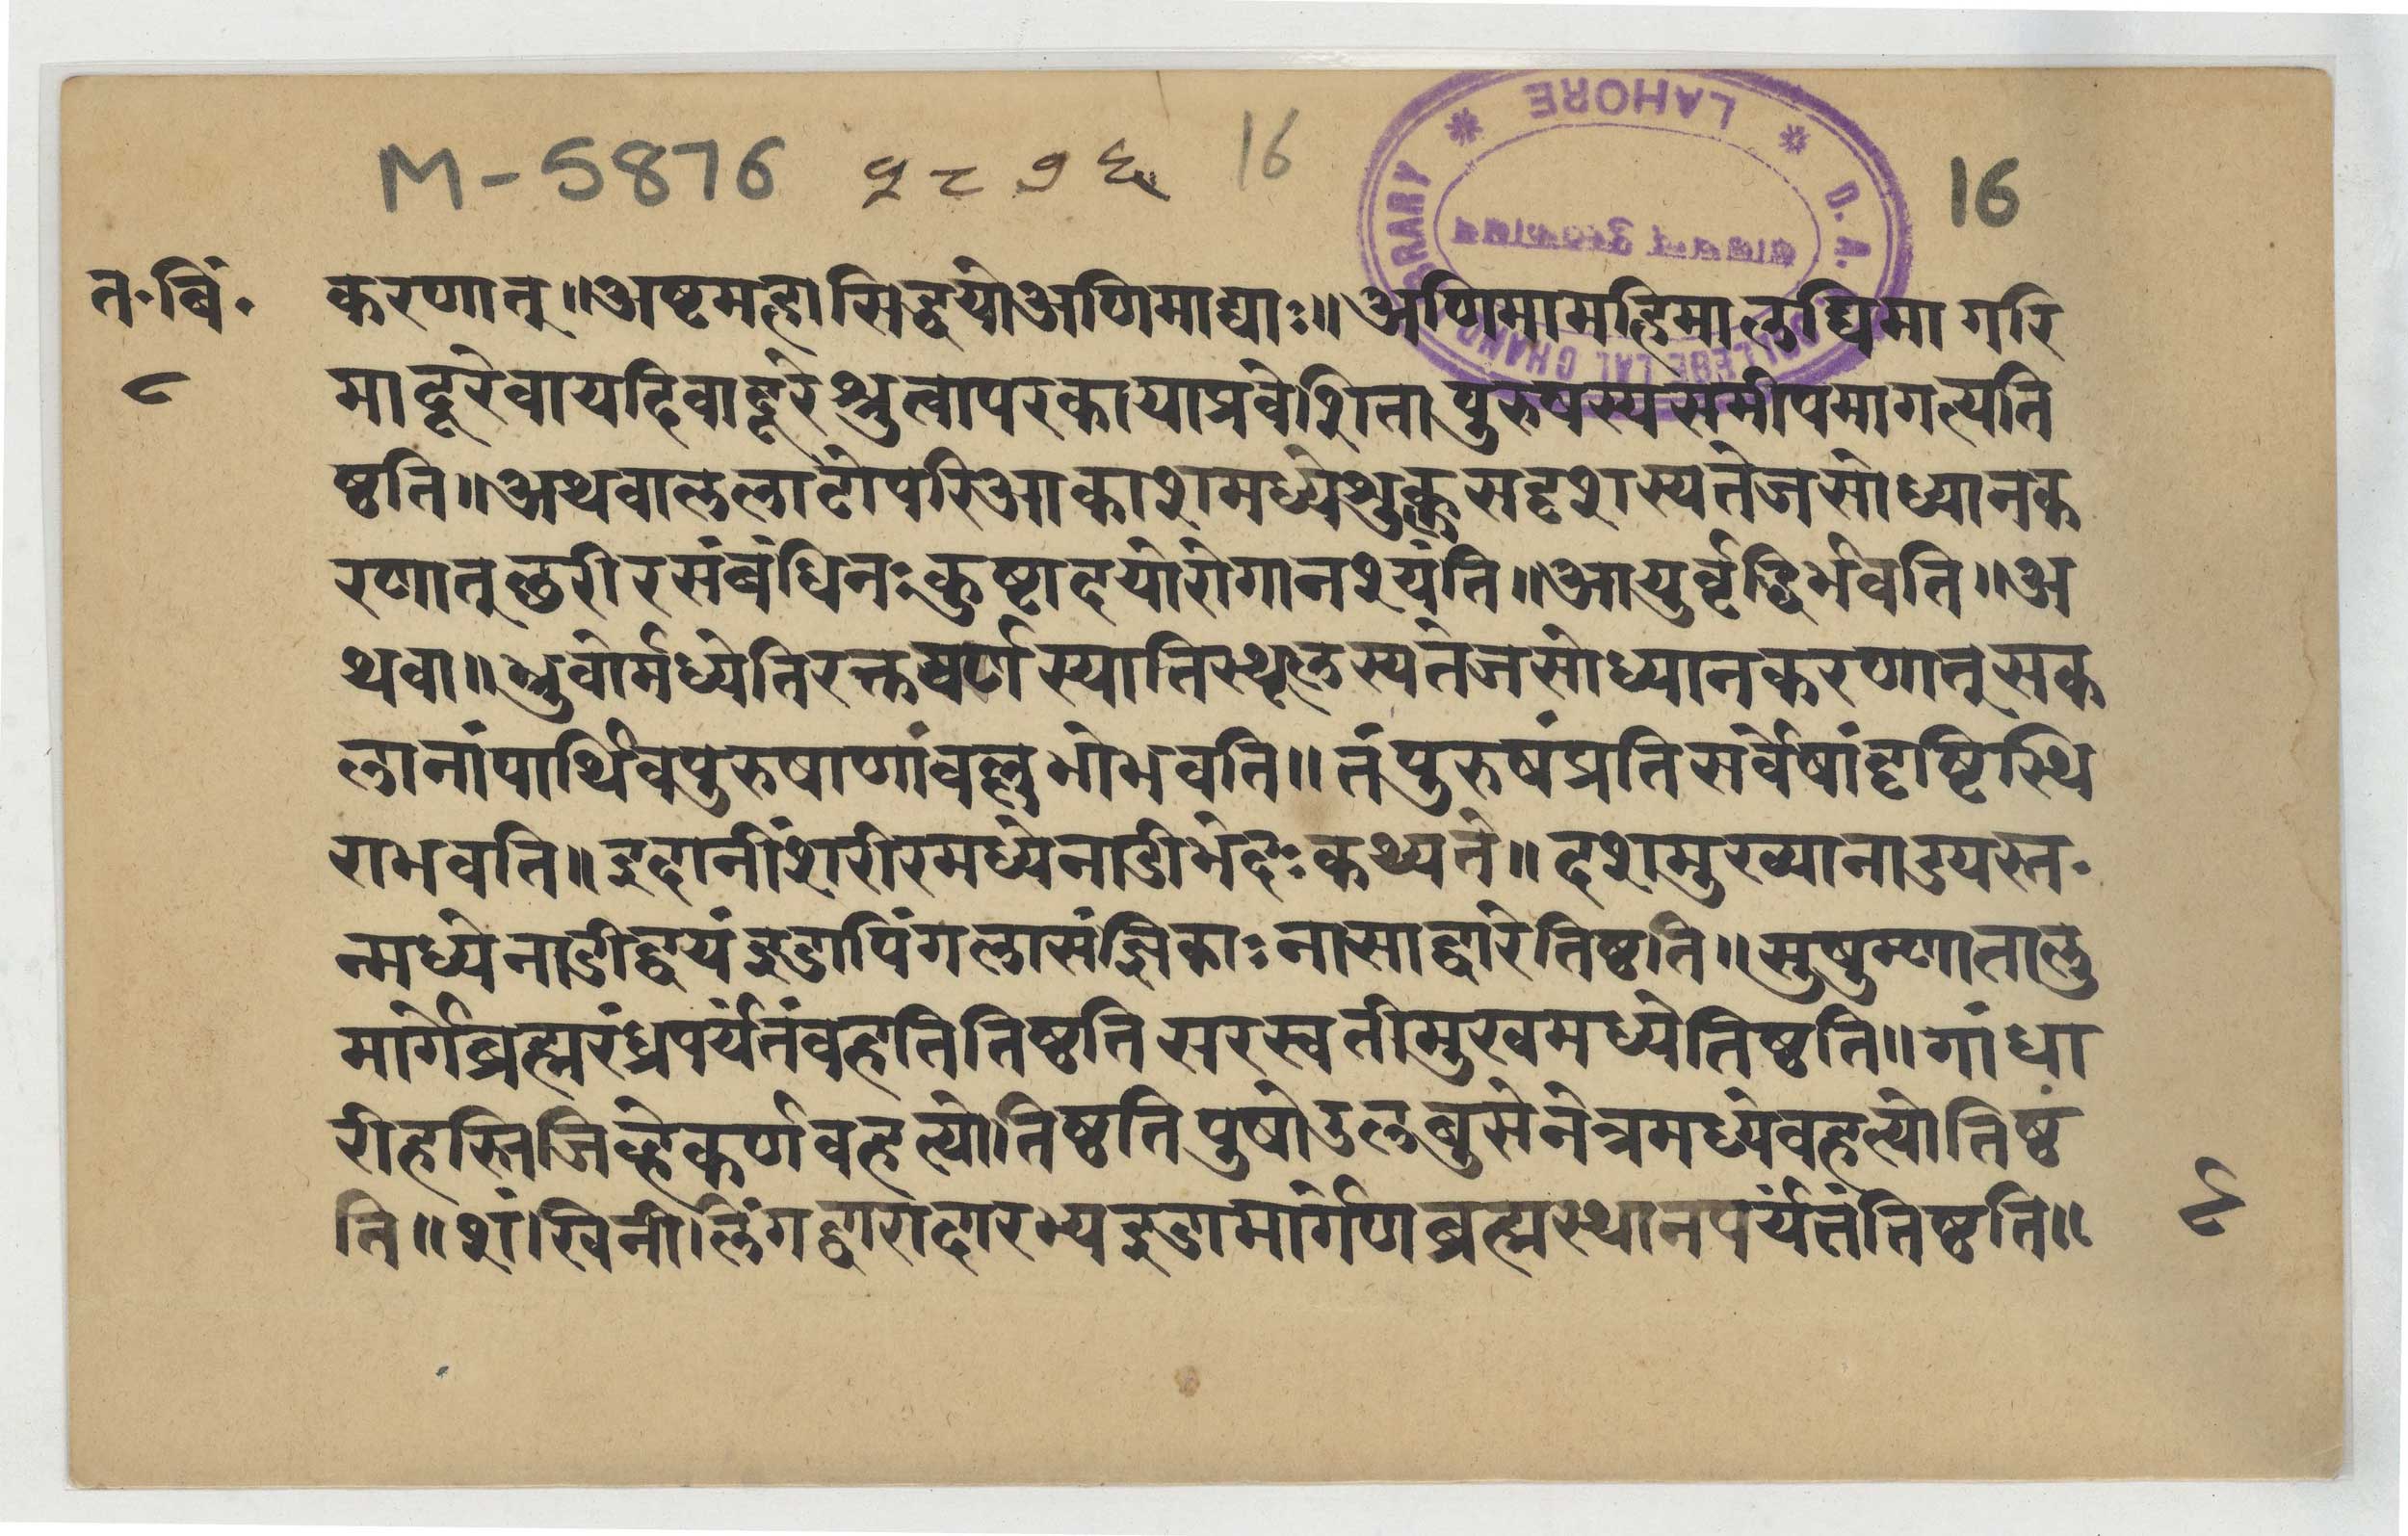 M-5876 ५८७६ 16 16
D. A. COLLEGE LAL CHAND LIBRARY * LAHORE *
त॰बिं॰
८
करणात्॥अष्टमहासिद्धयोअणिमाद्याः॥अणिमामहिमालघिमागरि
मादूरेवायहिवाद्दूरेश्रुत्वापरकायाप्रवेशिता पुरुषस्यसमीपमागत्यति
ष्ठति॥अथवाललाटोपरिआकाशमध्येशुक्लसदृशस्यतेजसोध्यानक
रणात्छरीरसंबंधिनःकुष्टादयोरोगानश्यंति॥आयुर्वृद्धिर्भवति॥अ
थवा॥भ्रुवोर्मध्येतिरक्तवर्णस्यातिस्थूलस्यतेजसोध्यानकरणात्सक
लानांपार्थिवपुरुषाणांवल्लभोभवति॥तंपुरुषंप्रतिसर्वेषांदृष्टिस्थि
राभवति॥इदानींशरीरमध्येनाडीभेदःकथ्यते॥दशमुख्यानाड्यस्त॰
न्मध्येनाडीद्वयंइडापिंगलासंज्ञिकाःनासाद्वारेतिष्ठति॥सुषुम्णातालु
मार्गेब्रह्मरंध्रपर्यंतंवहतितिष्ठति सरस्वतीमुखमध्येतिष्ठति॥गांधा
रीहस्तिजिव्हेकर्णवहत्योतिष्ठति पुषोऽलबुसेनेत्रमध्येवहत्योतिष्ठं
ति॥शंखिनीलिंगद्वारादारभ्यइडामार्गेणब्रह्मस्थानपर्यंतंतिष्ठति॥